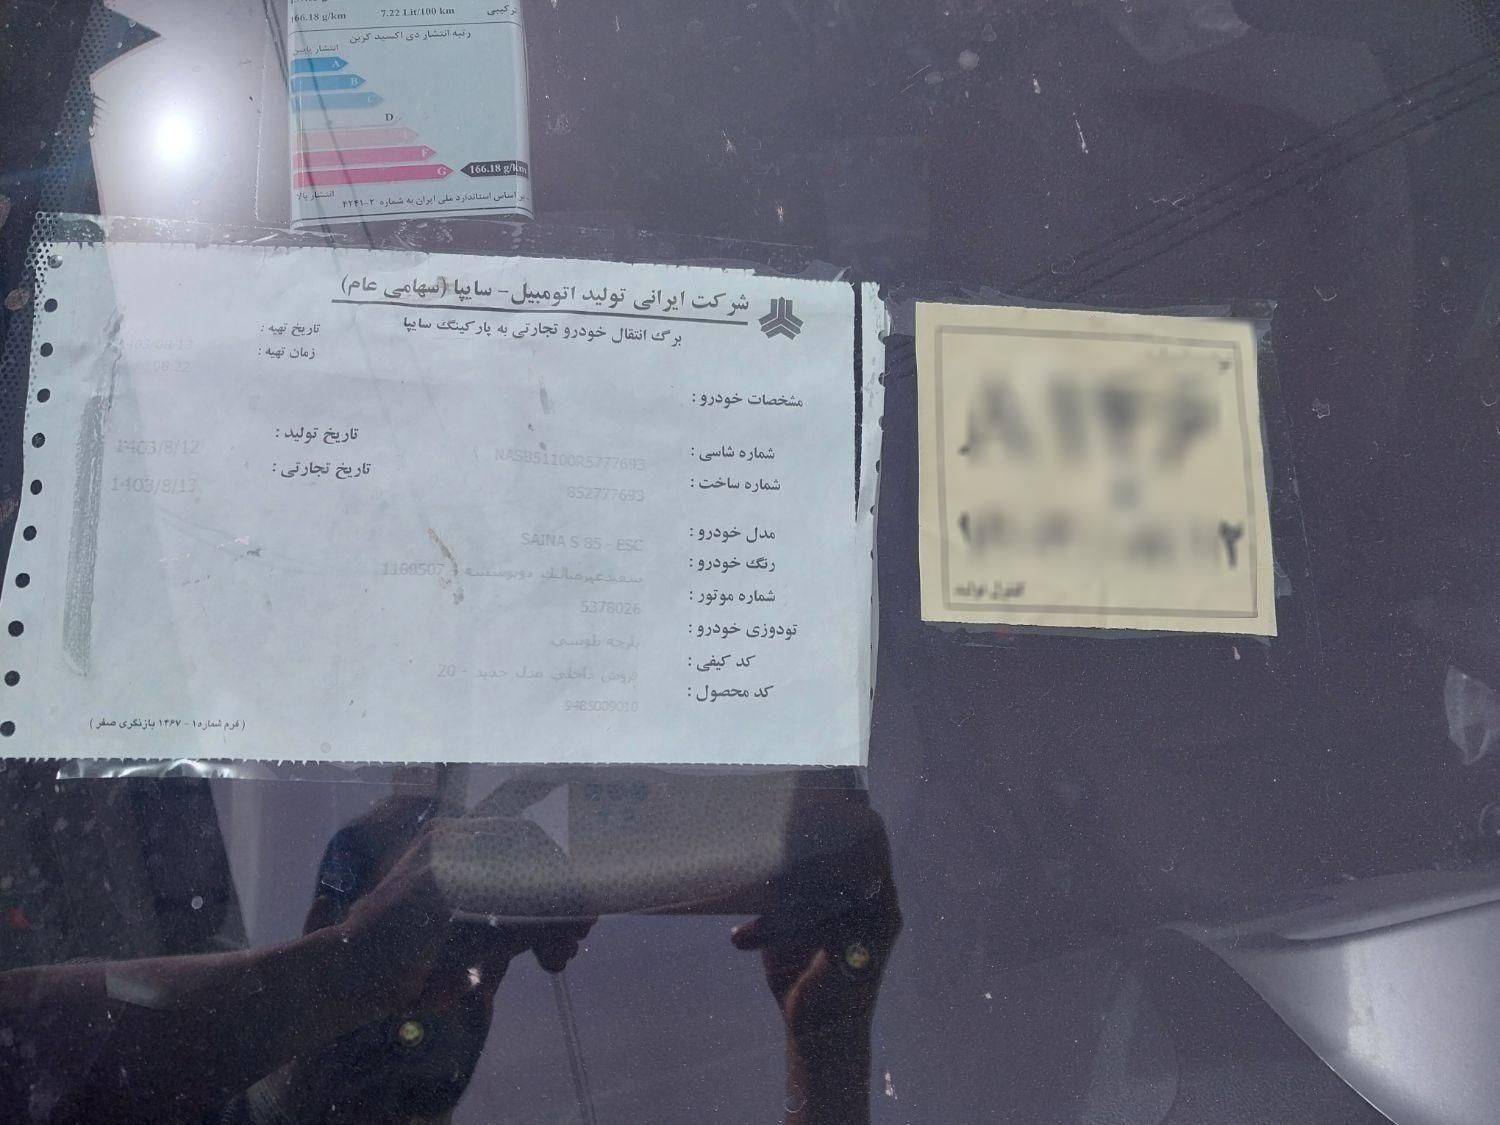 166.18 g/km 7.22 Lit/100 km ترکیبی
رتبه انتشار دی اکسید کربن
انتشار پایین
A
B
C
D
F
G 166.18 g/km
انتشار بالا
بر اساس استاندارد ملی ایران به شماره ۲-۴۲۴۱
شرکت ایرانی تولید اتومبیل- سایپا (سهامی عام)
برگ انتقال خودرو تجارتی به پارکینگ سایپا
تاریخ تهیه : 1403/08/13
زمان تهیه : 08:22
مشخصات خودرو :
تاریخ تولید : 1403/8/12
تاریخ تجارتی : 1403/8/13
شماره شاسی : NAS851100R5777693
شماره ساخت : 852777693
مدل خودرو : SAINA S 85 - ESC
رنگ خودرو : 1160507
شماره موتور : 5378026
تودوزی خودرو : پارچه طوسی
کد کیفی : فروش داخلی مدل جدید - 20
کد محصول : 9485009010
( فرم شماره ۱ - ۱۴۶۷ بازنگری صفر )